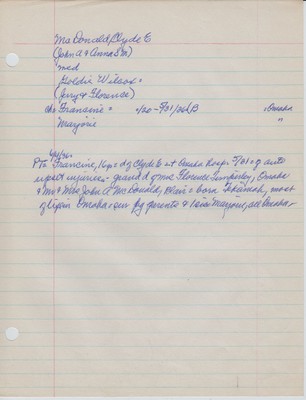 MacDonald, Clyde E
(John A & Anna S M)
med
Goldie Wilcox =
(Jerry & Florence)
ch: Francine = 4/20 - 5/31/36 LB Omaha
Marjorie "
Francine, 16 yr = d of Clyde E = at Omaha Hosp. 5/31 = of auto
injuries = grand d of Mrs Florence Timperley, Omaha
& Mr & Mrs John A McDonald, Blair = born Tekamah, most
of life in Omaha = sur by parents & 1 sis: Marjorie, all Omaha =